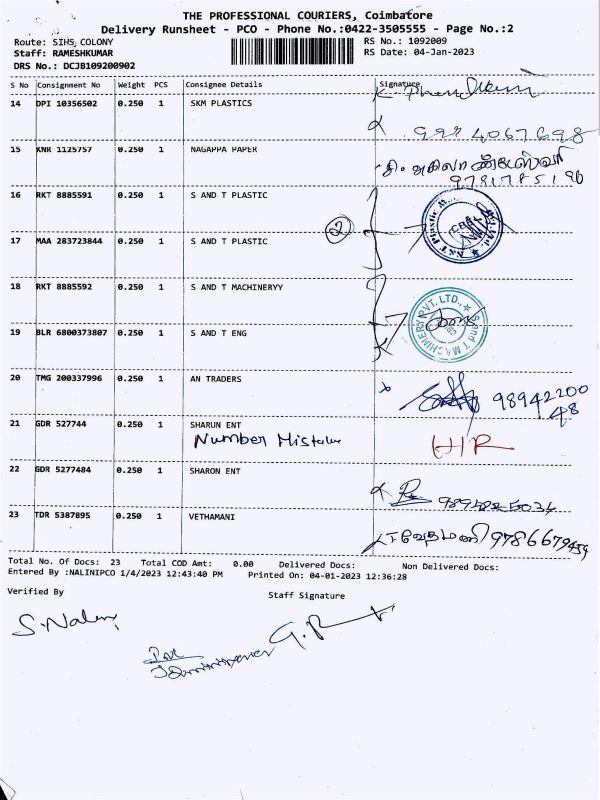 THE PROFESSIONAL COURIERS, Coimbatore
Delivery Runsheet - PCO - Phone No.:0422-3505555 - Page No.:2
Route: SIHS COLONY RS No.: 1092009
Staff: RAMESHKUMAR RS Date: 04-Jan-2023
DRS No.: DCJB109200902
S No Consignment No Weight PCS Consignee Details Signature
14 DPI 10356502 0.250 1 SKM PLASTICS
15 KNR 1125757 0.250 1 NAGAPPA PAPER
16 RKT 8885591 0.250 1 S AND T PLASTIC
2
17 MAA 283723844 0.250 1 S AND T PLASTIC
18 RKT 8885592 0.250 1 S AND T MACHINERYY
S and T MACHINERY PVT. LTD.,
19 BLR 6800373807 0.250 1 S AND T ENG
20 TMG 200337996 0.250 1 AN TRADERS
98942200
48
21 GDR 527744 0.250 1 SHARUN ENT
Number Mistake H/R
22 GDR 5277484 0.250 1 SHARON ENT
23 TDR 5387895 0.250 1 VETHAMANI
T வேதமணி 9786679459
Total No. Of Docs: 23 Total COD Amt: 0.00 Delivered Docs: Non Delivered Docs:
Entered By :NALINIPCO 1/4/2023 12:43:40 PM Printed On: 04-01-2023 12:36:28
Verified By Staff Signature